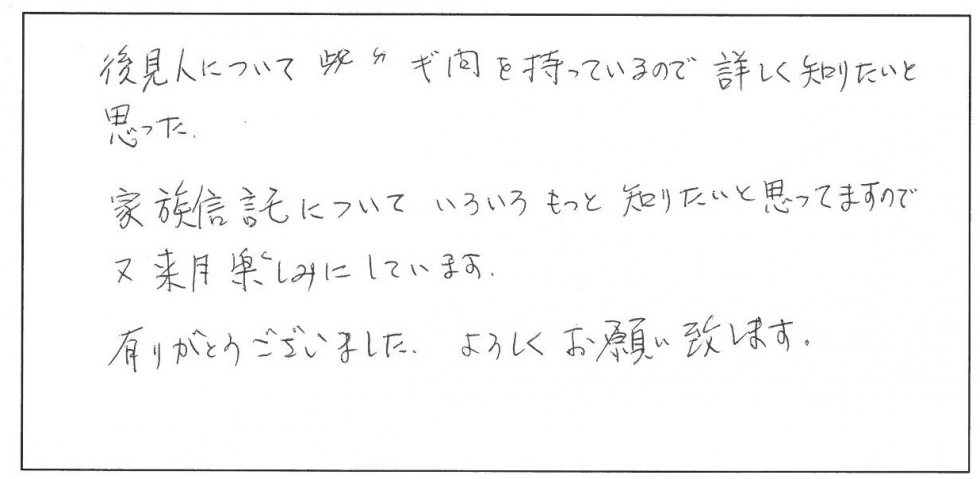 後見人について ギ問を持っているので 詳しく知りたいと
思った.
家族信託について いろいろ もっと 知りたいと思ってますので
又 来月 楽しみにしています.
有りがとうございました. よろしく お願い致します。